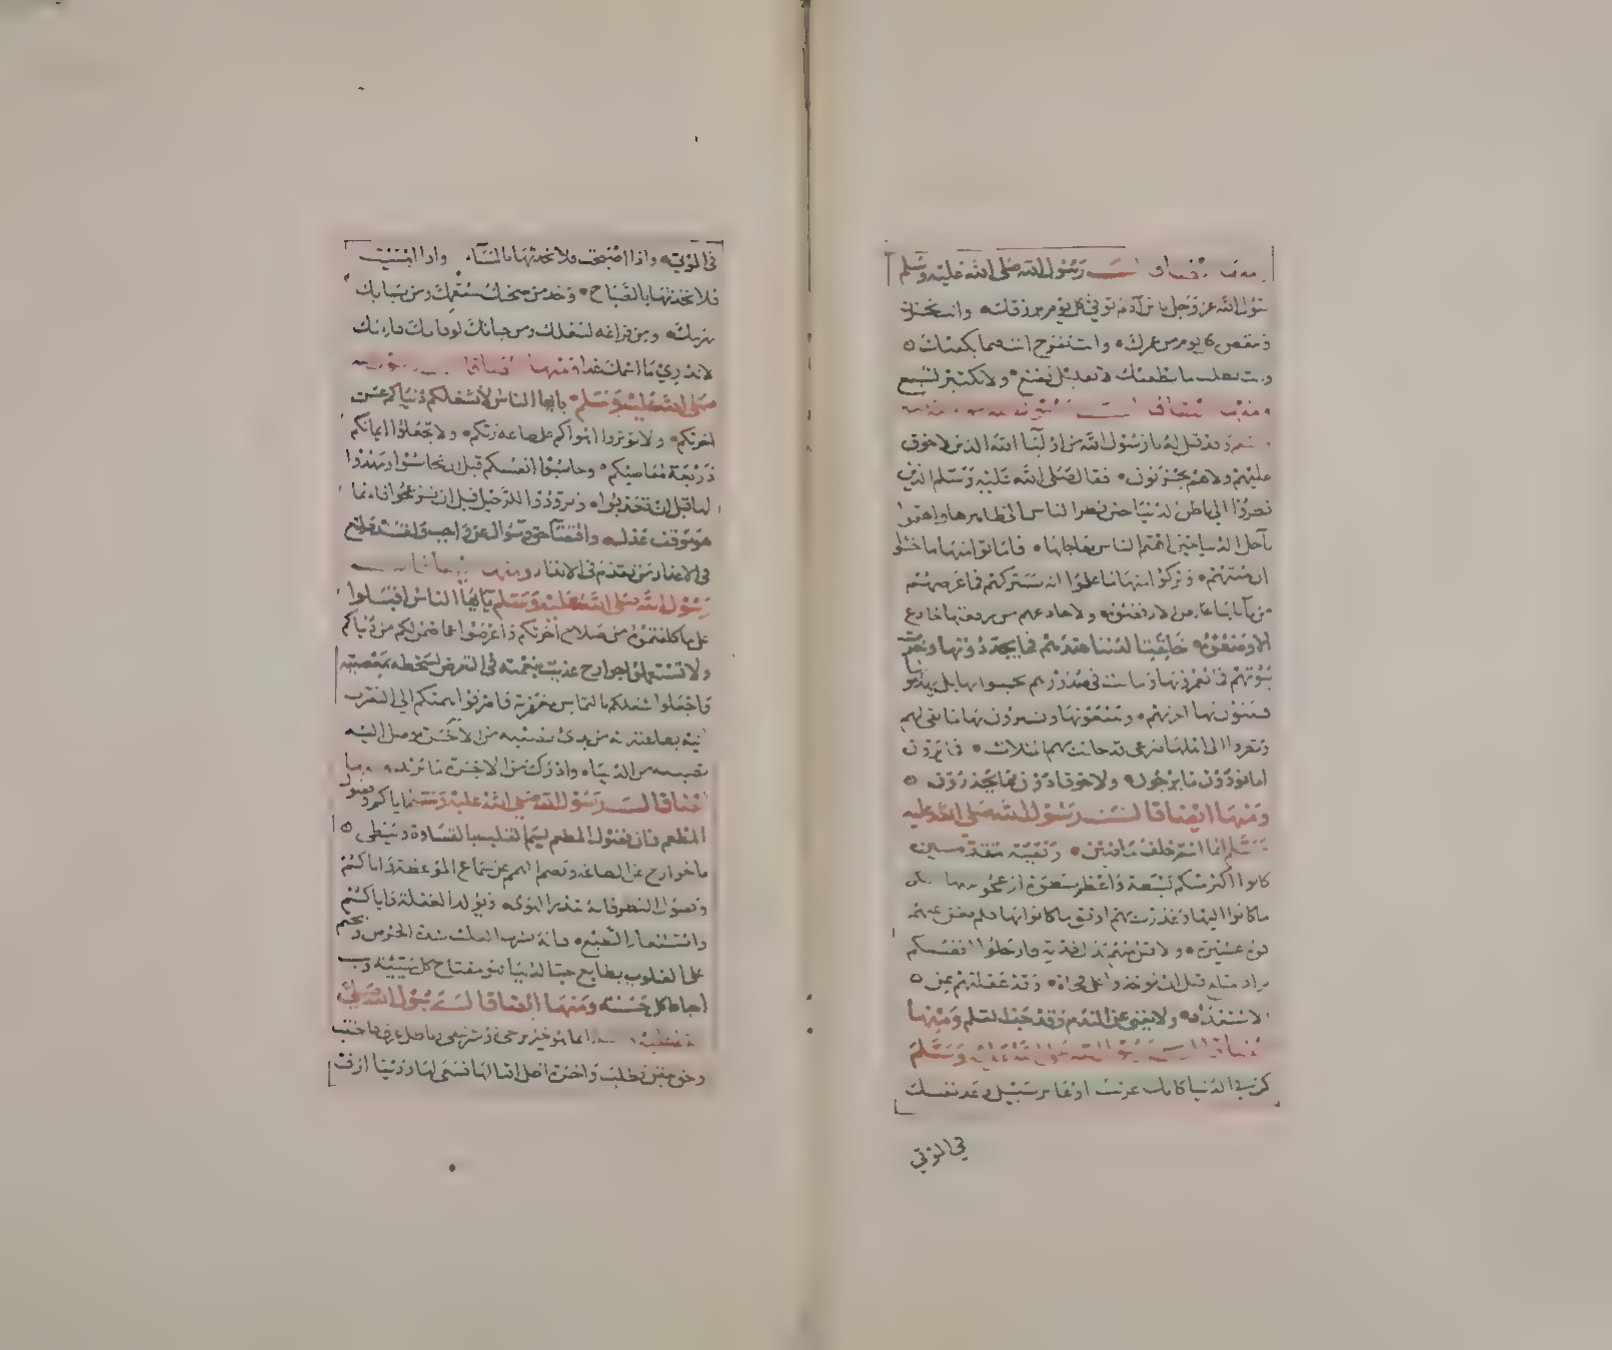 رسول الله صلى الله عليه وسلم
يقول الله عز وجل يا بن آدم توتي كل يوم برزقك وانت تحزن
وينقص كل يوم من عمرك وانت تفرح انت فيما يكفيك
وانت تطلب ما يطغيك لا بقليل تقنع ولا بكثير تشبع
قيل له يا رسول الله من اوليا الله الذين لا خوف
عليهم ولا هم يحزنون فقال صلى الله عليه وسلم الذين
نظروا الى باطن الدنيا حين نظر الناس الى ظاهرها واهتموا
بآجل الدنيا حين اهتم الناس بعاجلها فاماتوا منها ما خشوا
ان يميتهم وتركوا منها ما علموا ان سيتركهم فما عرض لهم
من عارض الا رفضوه ولا خادعهم من رفعتها خادع
الا وضعوه خلقت الدنيا عندهم فما يجددونها وخربت
بيوتهم فما يعمرونها وماتت في صدورهم فما يحبونها بل يهدمونها
فيبنون بها اخرتهم ويبيعونها ويشترون بها ما يبقى لهم
ونظروا الى اهلها صرعى قد حلت بهم المثلات فما يرون
امانا دون ما يرجون ولا خوفا دون ما يحذرون
ومنها ايضا قال رسول الله صلى الله عليه
وسلم انما انتم خلف ماضين وبقية متقدمين
كانوا اكثر منكم بسطة واعظم سطوة ازعجوا عنها
ما كانوا اليها وغدرت بهم اوثق ما كانوا بها فلم تغن عنهم
قوة عشيرة ولا قبل منهم بذل فدية فارحلوا انفسكم
بزاد مبلغ قبل ان توخذوا على فجأة وقد غفلتم عن
الاستعداد ولا يغني الندم وقد جف القلم ومنها
ايضا قال رسول الله صلى الله عليه وسلم
كن في الدنيا كانك غريب او عابر سبيل وعد نفسك
في الموتى
في الموتى واذا اصبحت فلا تحدثها بالمساء واذا امسيت
فلا تحدثها بالصباح وخذ من صحتك لسقمك ومن شبابك
لهرمك ومن فراغك لشغلك ومن حياتك لوفاتك فانك
لا تدري ما اسمك غدا ومنها ايضا قال رسول الله
صلى الله عليه وسلم يا ايها الناس لا تشغلكم دنياكم عن
اخرتكم ولا توثروا اهواكم على طاعة ربكم ولا تجعلوا ايمانكم
ذريعة لمعاصيكم وحاسبوا انفسكم قبل ان تحاسبوا ومهدوا
لها قبل ان تعذبوا وتزودوا للرحيل قبل ان تزعجوا فانما
هو موقف عدل واقتضا حق وسوال عن واجب ولقد بلغ
في الاعذار من تقدم في الانذار ومنها ايضا قال
رسول الله صلى الله عليه وسلم يا ايها الناس اقبلوا
على ما كلفتموه من صلاح اخرتكم واعرضوا عما ضمن لكم من دنياكم
ولا تستعملوا جوارح غذيت بنعمته في التعرض لسخطه بمعصيته
واجعلوا شغلكم بالتماس مغفرته واصرفوا همتكم الى التقرب
اليه بطاعته انه من بدئ بنصيبه من الاخرة وصل اليه
نصيبه من الدنيا وادرك من الاخرة ما يريد ومنها
ايضا قال رسول الله صلى الله عليه وسلم اياكم وفضول
المطعم فان فضول المطعم يسم القلب بالقساوة ويبطي
بالجوارح عن الطاعة ويصم الهمم عن سماع الموعظة واياكم
وفضول النظر فانه يبذر الهوى ويولد الغفلة واياكم
واستشعار الطمع فانه يشرب القلب شدة الحرص ويختم
على القلوب بطابع حب الدنيا فهو مفتاح كل سيئة وسبب
احباط كل حسنة ومنها ايضا قال رسول الله صلى
الله عليه وسلم انما هو خير يرجى وشر يتقى وباطل عرف فاجتنب
وحق يتقن فطلب واخرة اظل اقبالها فسعى لها ودنيا ازف